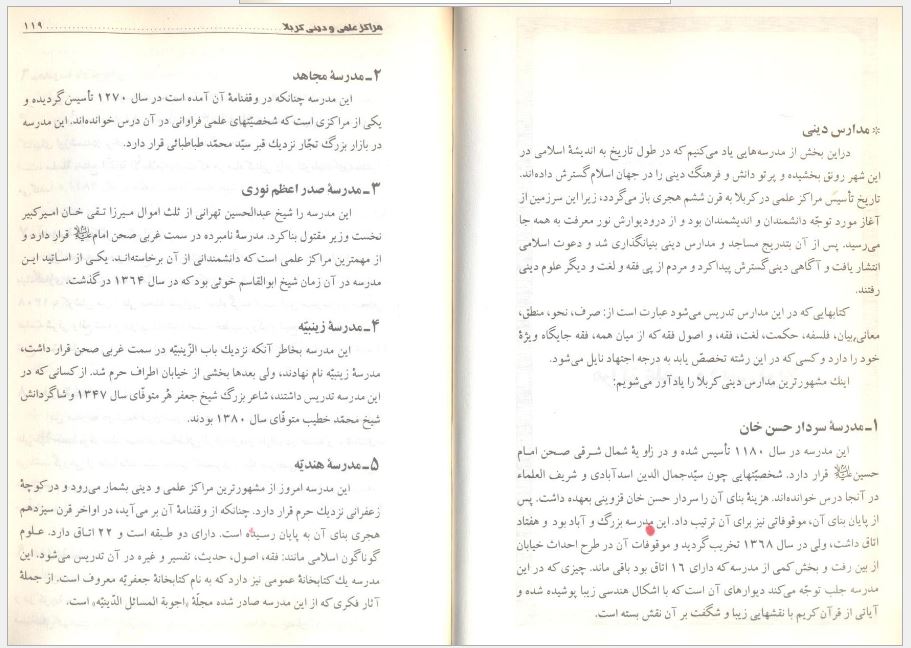 * مدارس دینی
دراین بخش از مدرسه‌هایی یاد می‌کنیم که در طول تاریخ به اندیشهٔ اسلامی در
این شهر رونق بخشیده و پرتو دانش و فرهنگ دینی را در جهان اسلام گسترش داده‌اند.
تاریخ تأسیس مراکز علمی در کربلا به قرن ششم هجری باز می‌گردد، زیرا این سرزمین از
آغاز مورد توجّه دانشمندان و اندیشمندان بود و از درودیوارش نور معرفت به همه جا
می‌رسید. پس از آن بتدریج مساجد و مدارس دینی بنیانگذاری شد و دعوت اسلامی
انتشار یافت و آگاهی دینی گسترش پیدا کرد و مردم از پی فقه و لغت و دیگر علوم دینی
رفتند.
کتابهایی که در این مدارس تدریس می‌شود عبارت است از: صرف، نحو، منطق،
معانی، بیان، فلسفه، حکمت، لغت، فقه، و اصول فقه که از میان همه، فقه جایگاه ویژهٔ
خود را دارد و کسی که در این رشته تخصّص یابد به درجه اجتهاد نایل می‌شود.
اینك مشهورترین مدارس دینی کربلا را یادآور می‌شویم:
۱ـ مدرسهٔ سردار حسن خان
این مدرسه در سال ۱۱۸۰ تأسیس شده و در زاویهٔ شمال شرقی صحن امام
حسین قرار دارد. شخصیّتهایی چون سیّدجمال الدین اسدآبادی و شریف العلماء
در آنجا درس خوانده‌اند. هزینهٔ بنای آن را سردار حسن خان قزوینی بعهده داشت. پس
از پایان بنای آن، موقوفاتی نیز برای آن ترتیب داد. این مدرسه بزرگ و آباد بود و هفتاد
اتاق داشت، ولی در سال ۱۳۶۸ تخریب گردید و موقوفات آن در طرح احداث خیابان
از بین رفت و بخش کمی از مدرسه که دارای ۱۶ اتاق بود باقی ماند. چیزی که در این
مدرسه جلب توجّه می‌کند دیوارهای آن است که با اشکال هندسی زیبا پوشیده شده و
آیاتی از قرآن کریم با نقشهایی زیبا و شگفت بر آن نقش بسته است.
مراکز علمی و دینی کربلا ........ ۱۱۹
۲ـ مدرسهٔ مجاهد
این مدرسه چنانکه در وقفنامهٔ آن آمده است در سال ۱۲۷۰ تأسیس گردیده و
یکی از مراکزی است که شخصیّتهای علمی فراوانی در آن درس خوانده‌اند. این مدرسه
در بازار بزرگ تجّار نزدیك قبر سیّد محمّد طباطبائی قرار دارد.
۳ـ مدرسهٔ صدر اعظم نوری
این مدرسه را شیخ عبدالحسین تهرانی از ثلث اموال میرزا تقی خان امیرکبیر
نخست وزیر مقتول بنا کرد. مدرسهٔ نامبرده در سمت غربی صحن امام قرار دارد و
از مهمترین مراکز علمی است که دانشمندانی از آن برخاسته‌اند. یکی از اساتید این
مدرسه در آن زمان شیخ ابوالقاسم خوئی بود که در سال ۱۳۶۴ درگذشت.
۴ـ مدرسهٔ زینبیّه
این مدرسه بخاطر آنکه نزدیك باب الزّینبیّه در سمت غربی صحن قرار داشت،
مدرسهٔ زینبیّه نام نهادند، ولی بعدها بخشی از خیابان اطراف حرم شد. از کسانی که در
این مدرسه تدریس داشتند، شاعر بزرگ شیخ جعفر هُر متوفّای سال ۱۳۴۷ و شاگردانش
شیخ محمّد خطیب متوفّای سال ۱۳۸۰ بودند.
۵ـ مدرسهٔ هندیّه
این مدرسه امروز از مشهورترین مراکز علمی و دینی بشمار می‌رود و در کوچهٔ
زعفرانی نزدیك حرم قرار دارد. چنانکه از وقفنامهٔ آن بر می‌آید، در اواخر قرن سیزدهم
هجری بنای آن به پایان رسیده است. دارای دو طبقه است و ۲۲ اتاق دارد. علوم
گوناگون اسلامی مانند: فقه، اصول، حدیث، تفسیر و غیره در آن تدریس می‌شود. این
مدرسه یك کتابخانهٔ عمومی نیز دارد که به نام کتابخانهٔ جعفریّه معروف است. از جملهٔ
آثار فکری که از این مدرسه صادر شده مجلّهٔ «اجوبة المسائل الدّینیّه» است.